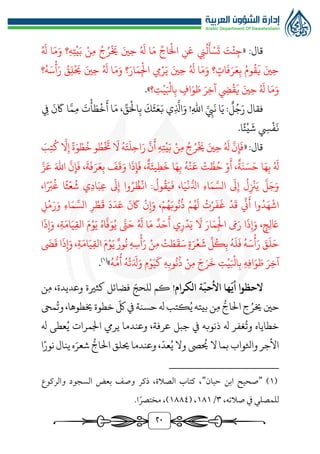 إدارة الشؤون العربية
Arabic Department Of Dawateislami
قال: «جِئْتَ تَسْأَلُنِي عَنِ الْحَاجِّ مَا لَهُ حِينَ يَخْرُجُ مِنْ بَيْتِهِ؟ وَمَا لَهُ
حِينَ يَقُومُ بِعَرَفَاتٍ؟ وَمَا لَهُ حِينَ يَرْمِي الْجِمَارَ؟ وَمَا لَهُ حِينَ يَحْلِقُ رَأْسَهُ؟
وَمَا لَهُ حِينَ يَقْضِي آخِرَ طَوَافٍ بِالْبَيْتِ؟».
فقال رَجُلٌ: يَا نَبِيَّ اللهِ! وَالَّذِي بَعَثَكَ بِالْحَقِّ، مَا أَخْطَأْتَ مِمَّا كَانَ فِي
نَفْسِي شَيْئًا.
قال: «فَإِنَّ لَهُ حِينَ يَخْرُجُ مِنْ بَيْتِهِ أَنَّ رَاحِلَتَهُ لَا تَخْطُو خُطْوَةً إِلَّا كُتِبَ
لَهُ بِهَا حَسَنَةٌ، أَوْ حُطَّتْ عَنْهُ بِهَا خَطِيئَةٌ، فَإِذَا وَقَفَ بِعَرَفَةَ، فَإِنَّ اللهَ عَزَّ
وَجَلَّ يَنْزِلُ إِلَى السَّمَاءِ الدُّنْيَا، فَيَقُولُ: انْظُرُوا إِلَى عِبَادِي شُعْثًا غُبْرًا،
اشْهَدُوا أَنِّي قَدْ غَفَرْتُ لَهُمْ ذُنُوبَهُمْ، وَإِنْ كَانَ عَدَدَ قَطْرِ السَّمَاءِ وَرَمْلِ
عَالِجٍ، وَإِذَا رَمَى الْجِمَارَ لَا يَدْرِي أَحَدٌ مَا لَهُ حَتَّى يُوَفَّاهُ يَوْمَ الْقِيَامَةِ، وَإِذَا
حَلَقَ رَأْسَهُ فَلَهُ بِكُلِّ شَعْرَةٍ سَقَطَتْ مِنْ رَأْسِهِ نُورٌ يَوْمَ الْقِيَامَةِ، وَإِذَا قَضَى
آخِرَ طَوَافِهِ بِالْبَيْتِ خَرَجَ مِنْ ذُنُوبِهِ كَيَوْمِ وَلَدَتْهُ أُمُّهُ»(١).
لاحظوا أيّها الأحبّة الكرام! كم للحجّ فضائل كثيرة وعديدة، مِن
حين يخرُج الحاجُّ مِن بيته يُكتب له حسنة في كلّ خطوة يخطوها، وتُمحى
خطاياه وتُغفر له ذنوبه في جبل عرفة، وعندما يرمي الجمرات يُعطى له
الأجر والثواب بما لا يُحصى ولا يُعدّ، وعندما يحلق الحاجُّ شعرَه ينال نورًا
(١) "صحيح ابن حبان"، كتاب الصلاة، ذكر وصف بعض السجود والركوع
للمصلي في صلاته، ٣/ ١٨١، (١٨٨٤)، مختصرًا.
٢٠